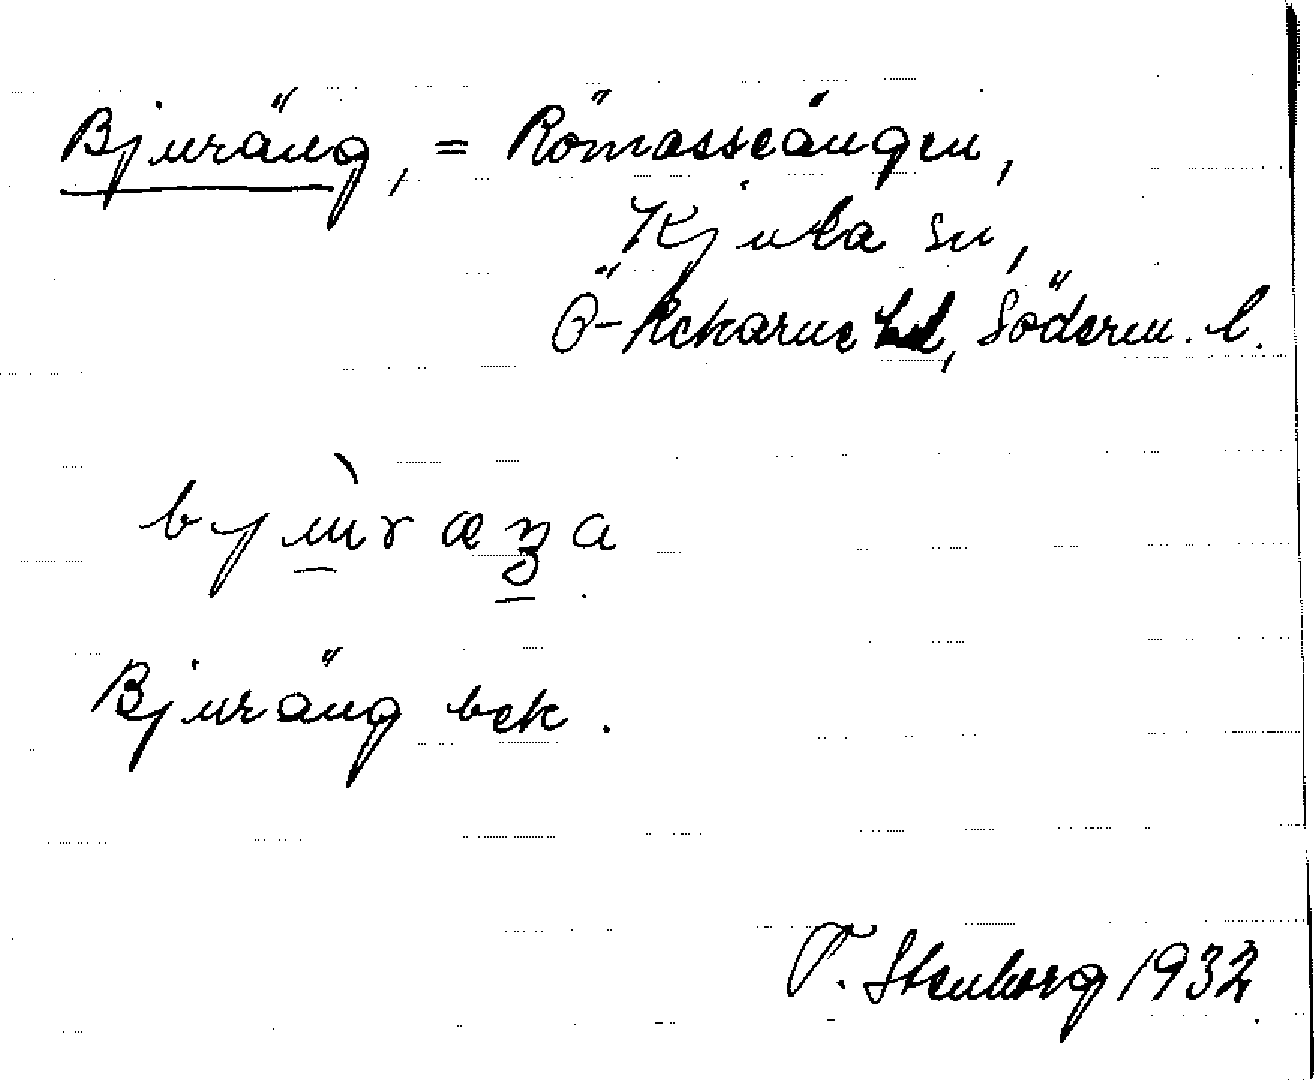 Bjuräng, = Römosseängen,
Kjula sn,
Ö-Rekarne hd, Söderm. l.
Bjuräng bck.
T. Stenborg 1932.